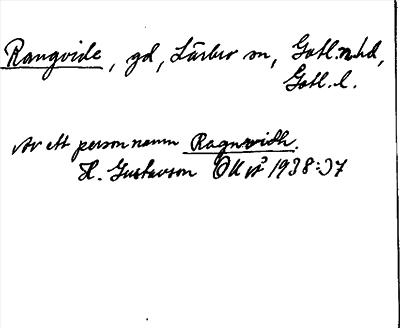 Rangvide, gd, Lärbro sn, Gotl. n. hd,
Gotl. l.
Av ett personnamn Ragnvidh.
H. Gustavson 1938:37